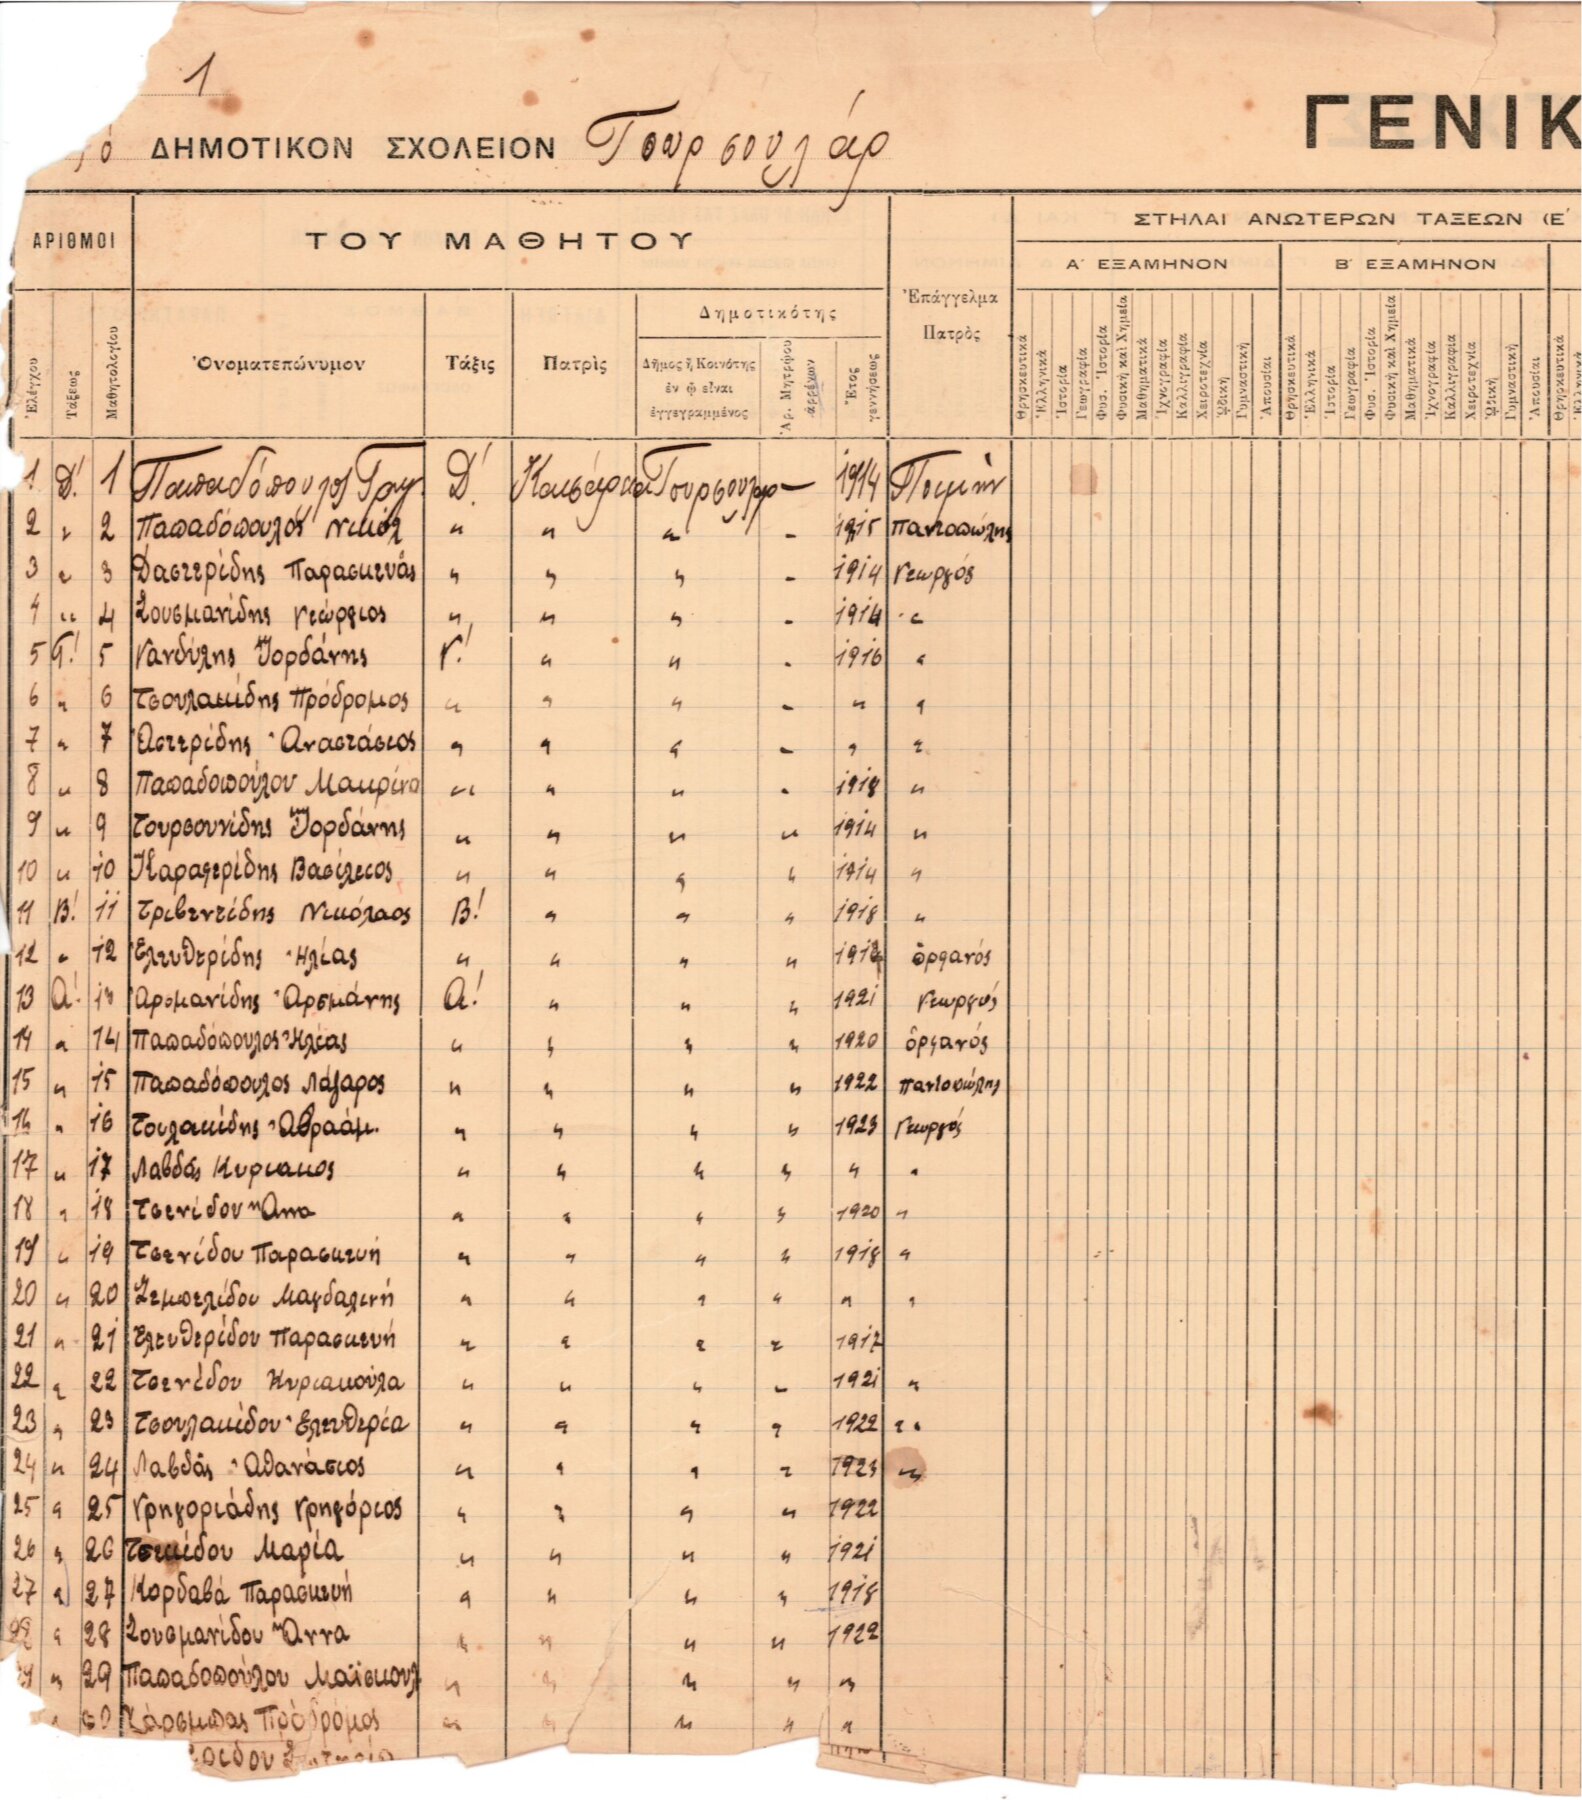 1
ό ΔΗΜΟΤΙΚΟΝ ΣΧΟΛΕΙΟΝ Τουρσουλάρ
ΓΕΝΙΚ
ΑΡΙΘΜΟΙ ΤΟΥ ΜΑΘΗΤΟΥ Ἐπάγγελμα Πατρὸς ΣΤΗΛΑΙ ΑΝΩΤΕΡΩΝ ΤΑΞΕΩΝ (Ε΄
Α΄ ΕΞΑΜΗΝΟΝ Β΄ ΕΞΑΜΗΝΟΝ
Ἐλέγχου Τάξεως Μαθητολογίου Ὀνοματεπώνυμον Τάξις Πατρὶς Δημοτικότης
Δῆμος ἢ Κοινότης ἐν ᾧ εἶναι ἐγγεγραμμένος Ἀρ. Μητρῴου ἀρρένων Ἔτος γεννήσεως
Θρησκευτικά Ἑλληνικά Ἱστορία Γεωγραφία Φυσ. Ἱστορία Φυσικὴ καὶ Χημεία Μαθηματικά Ἰχνογραφία Καλλιγραφία Χειροτεχνία ᾨδική Γυμναστική Ἀπουσίαι Θρησκευτικά Ἑλληνικά Ἱστορία Γεωγραφία Φυσ. Ἱστορία Φυσικὴ καὶ Χημεία Μαθηματικά Ἰχνογραφία Καλλιγραφία Χειροτεχνία ᾨδική Γυμναστική Ἀπουσίαι Θρησκευτικά Ἑλληνικά
1 Δ΄. 1 Παπαδόπουλος Γρηγ. Δ΄. Καισάρεια Τουρσουλαρ – 1914 Ποιμὴν
2 〃 2 Παπαδόπουλος Νικόλ 〃 〃 〃 – 1915 παντοπώλης
3 〃 3 Δαστερίδης Παρασκευᾶς 〃 〃 〃 – 1914 Γεωργός
4 〃 4 Σουσμανίδης Γεώργιος 〃 〃 〃 – 1914 〃
5 Γ΄. 5 Κανδύλης Ἰορδάνης Γ΄. 〃 〃 – 1916 〃
6 〃 6 Τσουλακίδης Πρόδρομος 〃 〃 〃 – 〃 〃
7 〃 7 Ἀστερίδης Ἀναστάσιος 〃 〃 〃 – 〃 〃
8 〃 8 Παπαδοπούλου Μακρίνα 〃 〃 〃 – 1918 〃
9 〃 9 Τουρσουνίδης Ἰορδάνης 〃 〃 〃 〃 1914 〃
10 〃 10 Καραφερίδης Βασίλειος 〃 〃 〃 〃 1914 〃
11 Β΄. 11 Τριβεντίδης Νικόλαος Β΄. 〃 〃 〃 1918 〃
12 〃 12 Ἐλευθερίδης Ἠλίας 〃 〃 〃 〃 ὀρφανός
13 Α΄. 13 Ἀρσμανίδης Ἀρσμάνης Α΄. 〃 〃 〃 1921 Γεωργός
14 〃 14 Παπαδόπουλος Ἠλίας 〃 〃 〃 〃 1920 ὀρφανός
15 〃 15 Παπαδόπουλος Λάζαρος 〃 〃 〃 〃 1922 παντοπώλης
16 〃 16 Τσουλακίδης Ἀβραάμ. 〃 〃 〃 〃 1923 Γεωργός
17 〃 17 Λαβδᾶς Κυριακος 〃 〃 〃 〃 〃 〃
18 〃 18 Τσενίδου Ἄννα 〃 〃 〃 〃 1920 〃
19 〃 19 Τσενίδου Παρασκευή 〃 〃 〃 〃 1918 〃
20 〃 20 Ζεμπελίδου Μαγδαληνή 〃 〃 〃 〃 〃 〃
21 〃 21 Ἐλευθερίδου Παρασκευή 〃 〃 〃 〃 1917
22 〃 22 Τσενίδου Κυριακούλα 〃 〃 〃 〃 1921 〃
23 〃 23 Τσουλακίδου Ἐλευθερία 〃 〃 〃 〃 1922 〃
24 〃 24 Λαβδᾶς Ἀθανάσιος 〃 〃 〃 〃 1923 〃
25 〃 25 Γρηγοριάδης Γρηγόριος 〃 〃 〃 〃 1922
26 〃 26 Μαρία 〃 〃 〃 〃 1921
27 〃 27 Κορδαβά Παρασκευή 〃 〃 〃 〃 1918
28 〃 28 Σουσμανίδου Ἄννα 〃 〃 〃 〃 1922
〃 29 Παπαδοπούλου 〃 〃 〃 〃 〃
〃 30 Πρόδρομος 〃 〃 〃 〃 〃